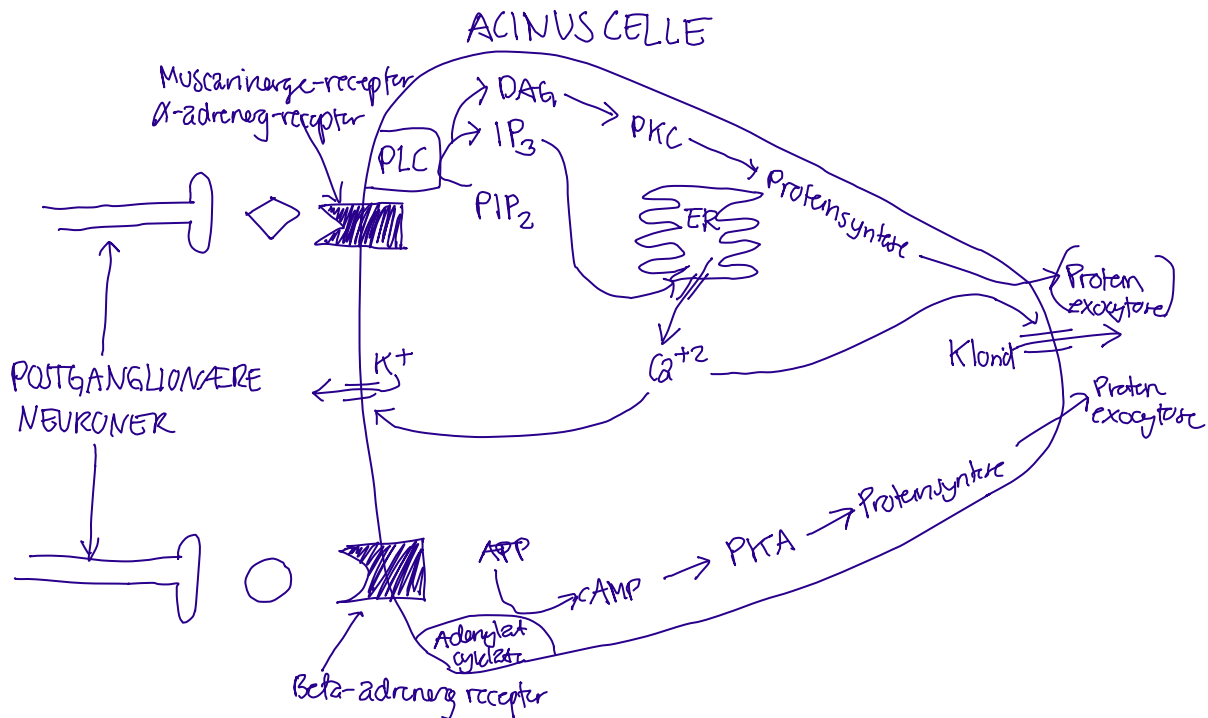 ACINUS CELLE
Muscarinerge-receptor
α-adrenerg-receptor
DAG
PKC
IP3
PLC
PIP2
Proteinsyntese
ER
(Protein
exocytose)
K+
Ca+2
Klorid
POSTGANGLIONÆRE
NEURONER
Protein
exocytose
Proteinsyntese
APP
PKA
cAMP
Adenylat
cyklase
Beta-adrenerg receptor